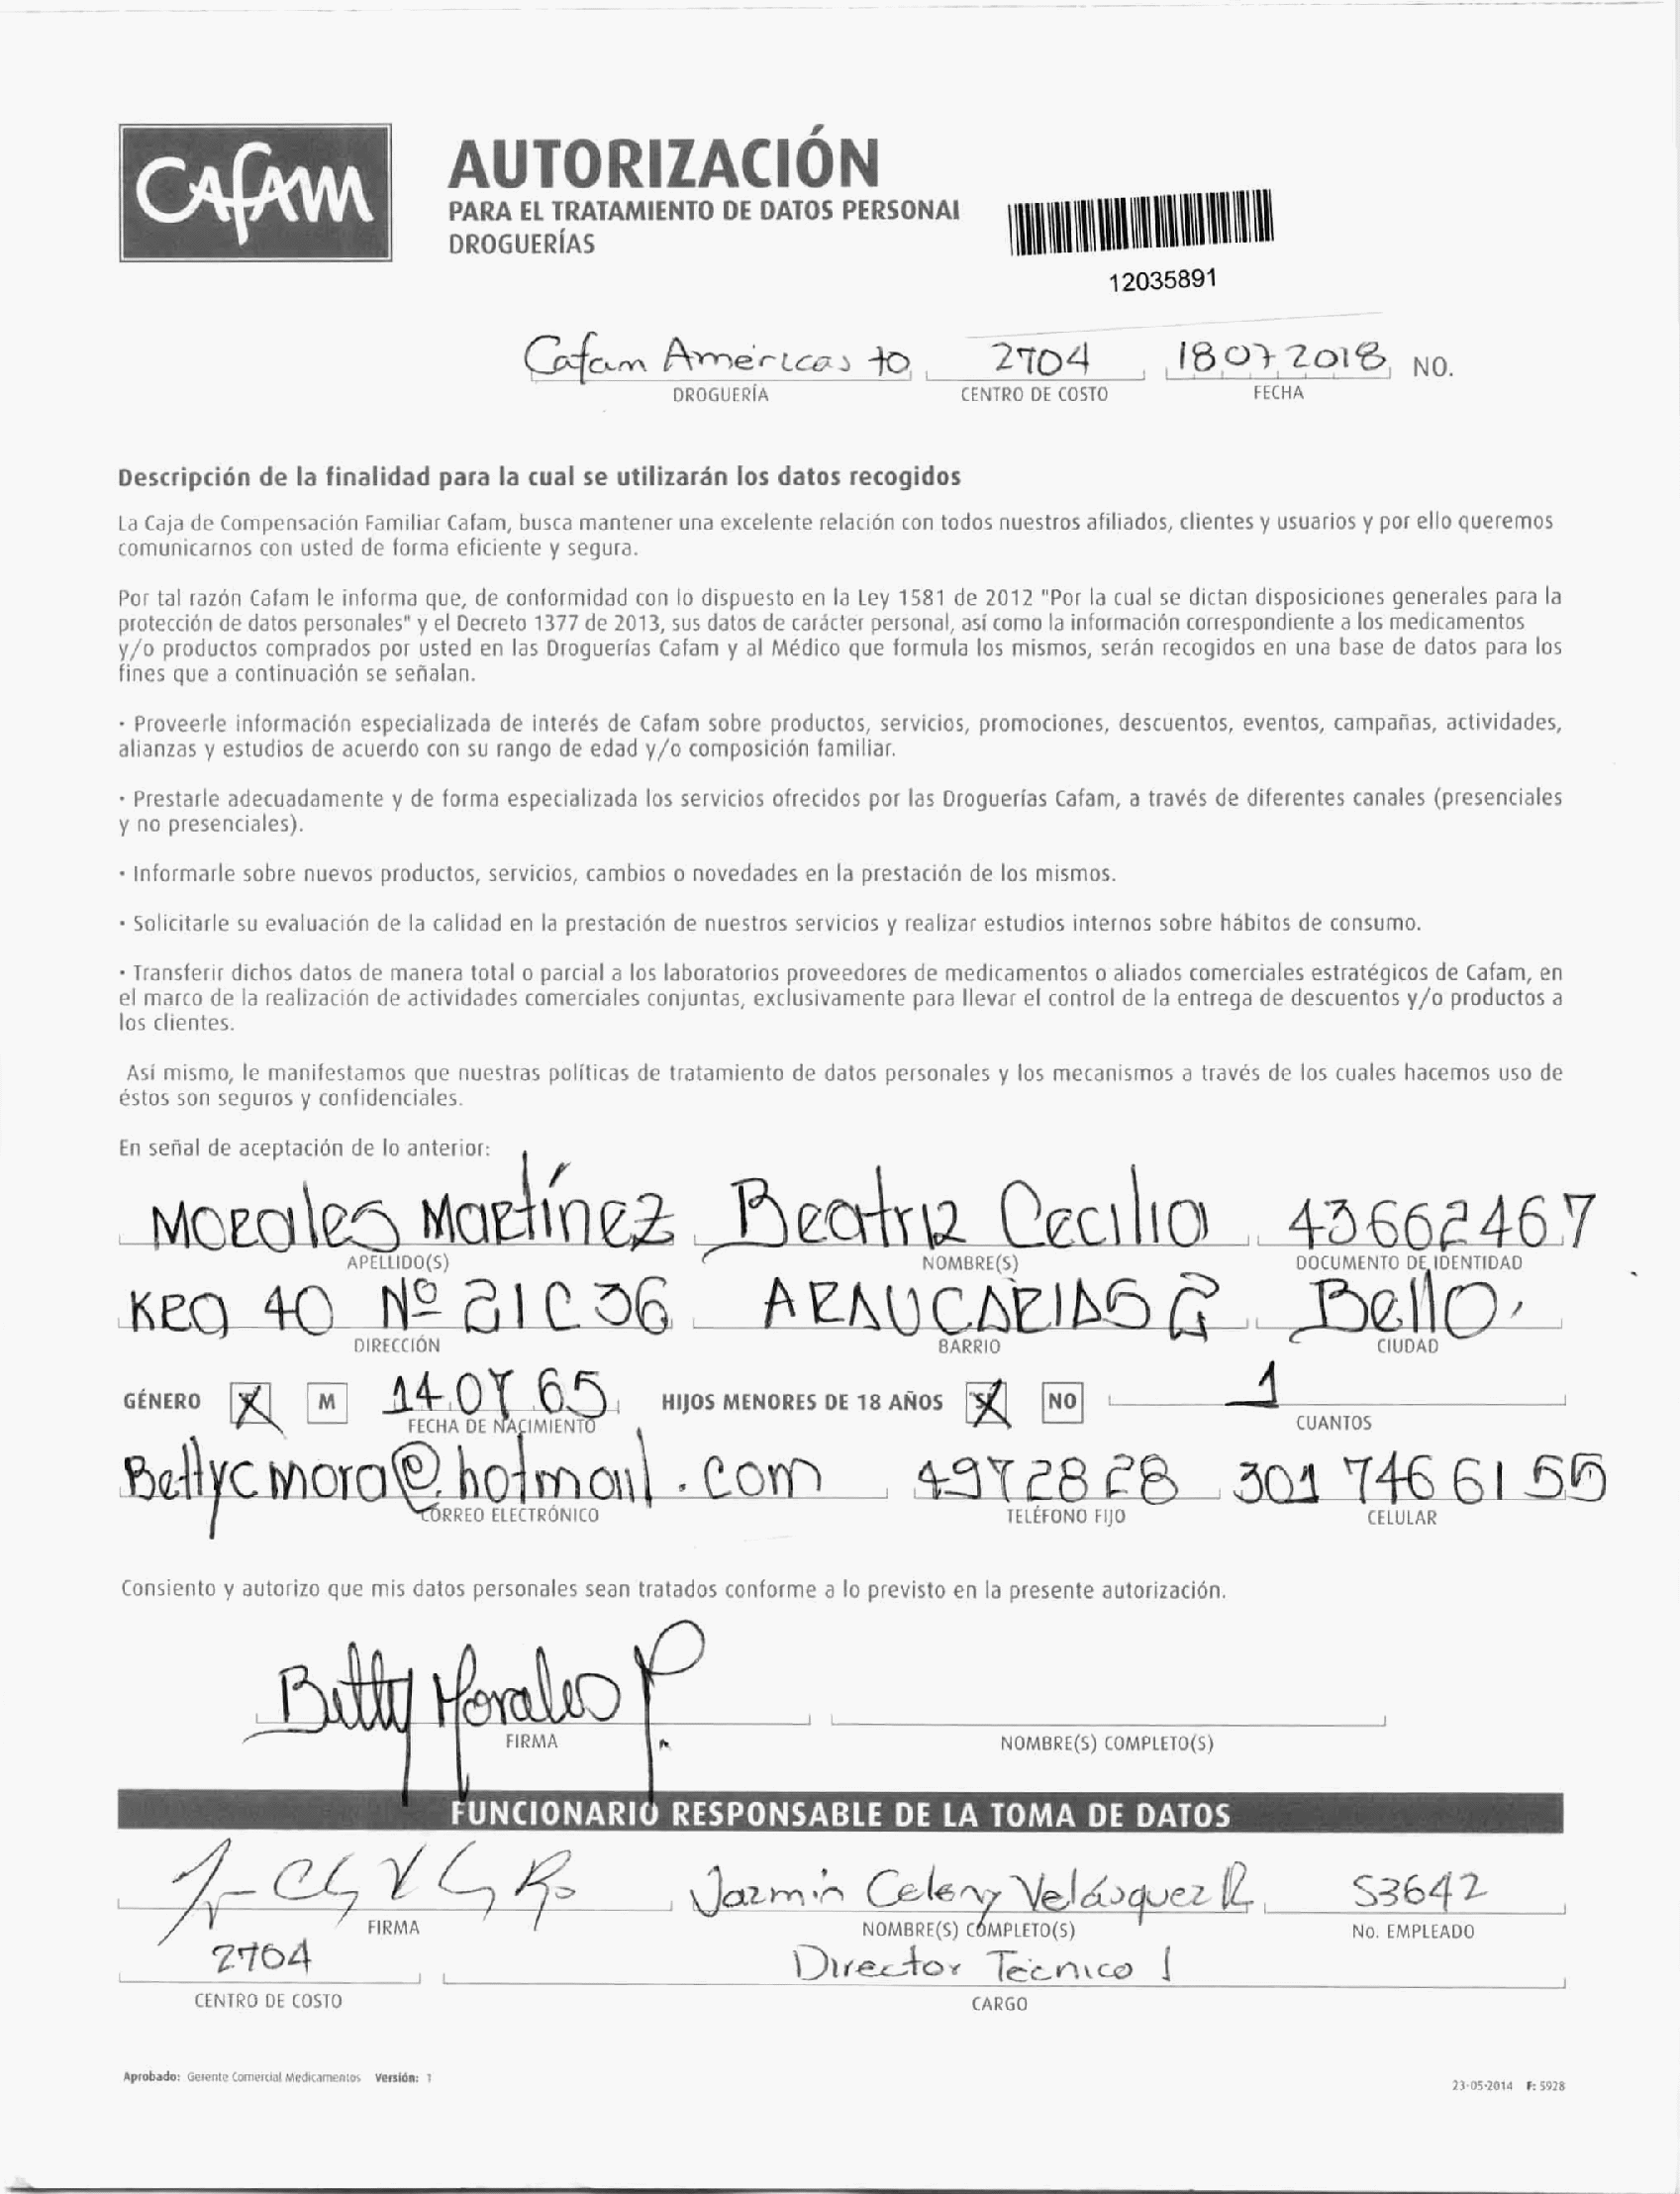 Cafam
AUTORIZACIÓN
PARA EL TRATAMIENTO DE DATOS PERSONAL
DROGUERÍAS
12035891
Cafam Américas to 2704 18 07 2018 NO.
DROGUERÍA CENTRO DE COSTO FECHA
Descripción de la finalidad para la cual se utilizarán los datos recogidos
La Caja de Compensación Familiar Cafam, busca mantener una excelente relación con todos nuestros afiliados, clientes y usuarios y por ello queremos
comunicarnos con usted de forma eficiente y segura.
Por tal razón Cafam le informa que, de conformidad con lo dispuesto en la Ley 1581 de 2012 "Por la cual se dictan disposiciones generales para la
protección de datos personales" y el Decreto 1377 de 2013, sus datos de carácter personal, así como la información correspondiente a los medicamentos
y/o productos comprados por usted en las Droguerías Cafam y al Médico que formula los mismos, serán recogidos en una base de datos para los
fines que a continuación se señalan.
· Proveerle información especializada de interés de Cafam sobre productos, servicios, promociones, descuentos, eventos, campañas, actividades,
alianzas y estudios de acuerdo con su rango de edad y/o composición familiar.
· Prestarle adecuadamente y de forma especializada los servicios ofrecidos por las Droguerías Cafam, a través de diferentes canales (presenciales
y no presenciales).
· Informarle sobre nuevos productos, servicios, cambios o novedades en la prestación de los mismos.
· Solicitarle su evaluación de la calidad en la prestación de nuestros servicios y realizar estudios internos sobre hábitos de consumo.
· Transferir dichos datos de manera total o parcial a los laboratorios proveedores de medicamentos o aliados comerciales estratégicos de Cafam, en
el marco de la realización de actividades comerciales conjuntas, exclusivamente para llevar el control de la entrega de descuentos y/o productos a
los clientes.
Así mismo, le manifestamos que nuestras políticas de tratamiento de datos personales y los mecanismos a través de los cuales hacemos uso de
éstos son seguros y confidenciales.
En señal de aceptación de lo anterior:
Morales Martínez Beatriz Cecilia 43662467
APELLIDO(S) NOMBRE(S) DOCUMENTO DE IDENTIDAD
KRA 40 Nº 21C 36 ARAUCARIAS 2 Bello.
DIRECCIÓN BARRIO CIUDAD
GÉNERO X M 14 07 65 HIJOS MENORES DE 18 AÑOS X NO 1
FECHA DE NACIMIENTO CUANTOS
Bettycmora@hotmail.com 4972828 301 746 61 55
CORREO ELECTRÓNICO TELÉFONO FIJO CELULAR
Consiento y autorizo que mis datos personales sean tratados conforme a lo previsto en la presente autorización.
Betty Morales
FIRMA NOMBRE(S) COMPLETO(S)
FUNCIONARIO RESPONSABLE DE LA TOMA DE DATOS
Jazmin Celeny Velásquez R 53642
FIRMA NOMBRE(S) COMPLETO(S) No. EMPLEADO
2704 Director Técnico I
CENTRO DE COSTO CARGO
Aprobado: Gerente Comercial Medicamentos Versión: 1
23-05-2014 F: 5928